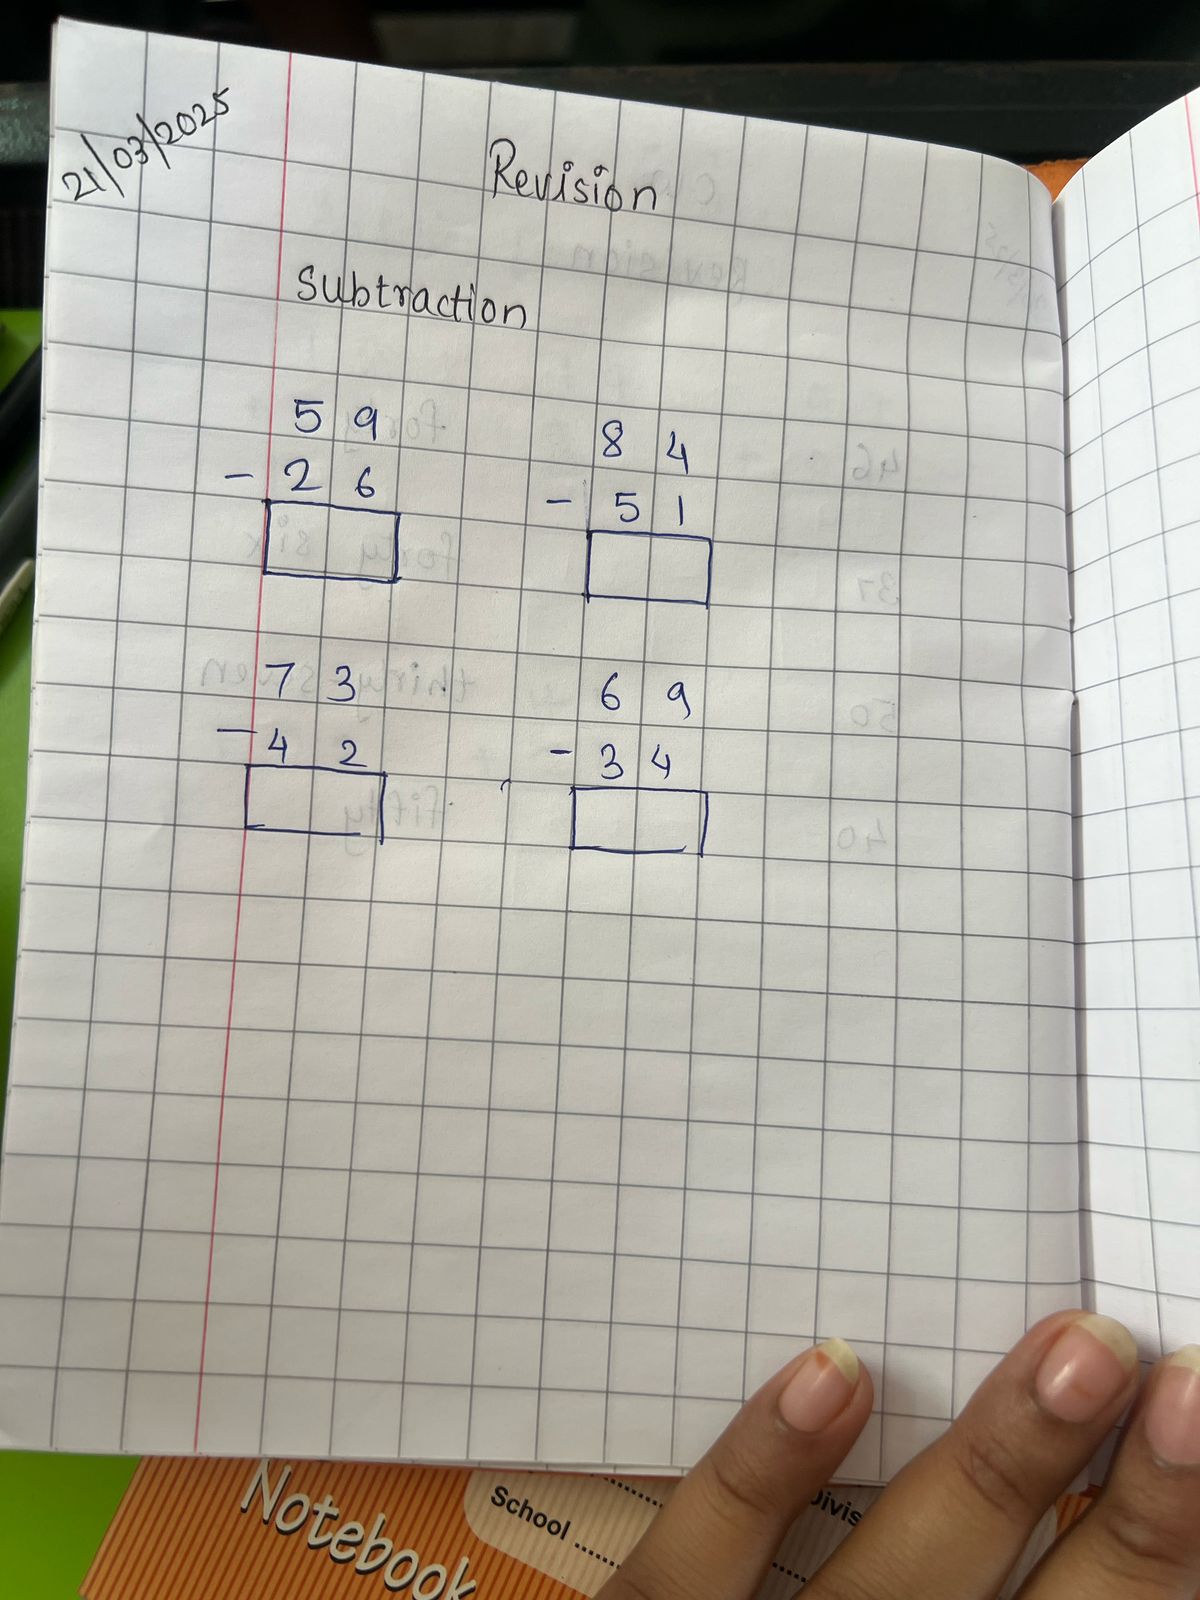 21/03/2025
Revision
Subtraction
5 9
- 2 6
8 4
- 5 1
7 3
- 4 2
6 9
- 3 4
Notebook
School ..........